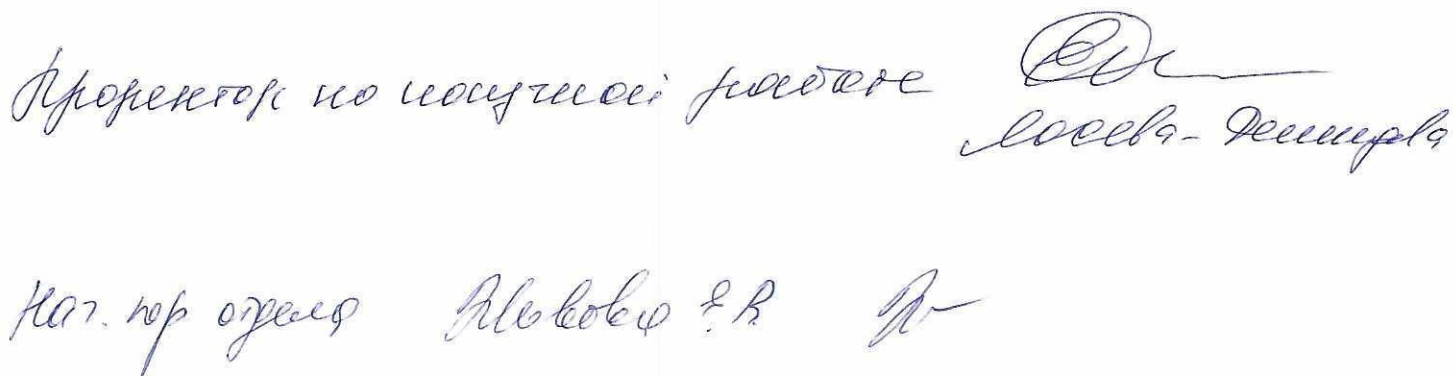 Проректор по научной работе
Лосева-Демидова
Нач. юр отдела Львова Е.В.